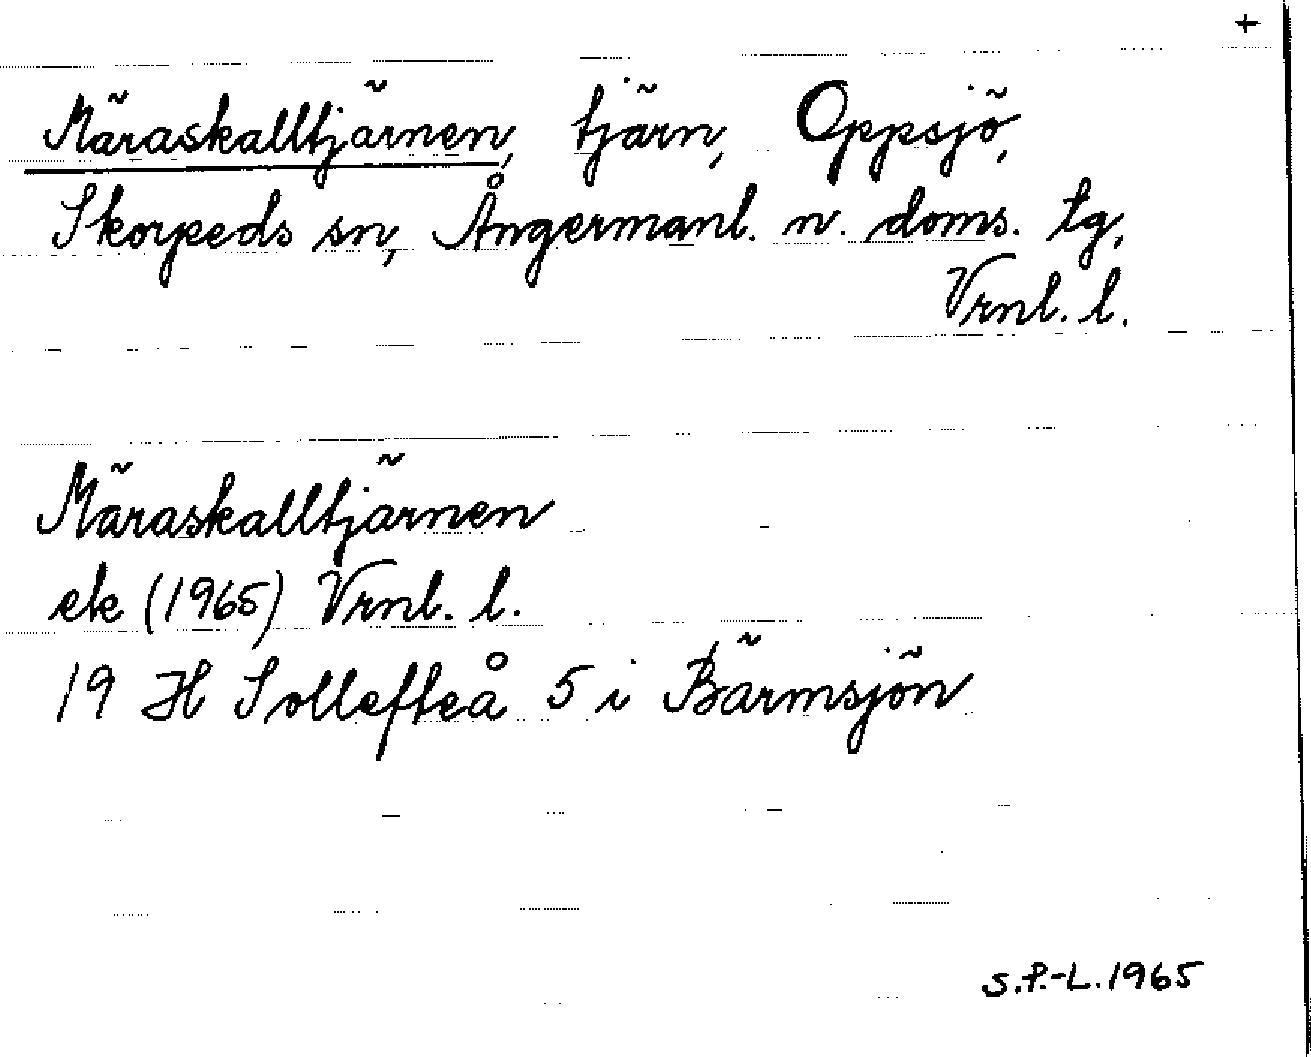 +
Märaskalltjärnen, tjärn, Oppsjö,
Skorpeds sn, Ångermanl. n. doms. tg,
Vrnl. l.
Märaskalltjärnen
ek (1965) Vrnl. l.
19 H Sollefteå 5 i Bärmsjön
S.P.-L. 1965